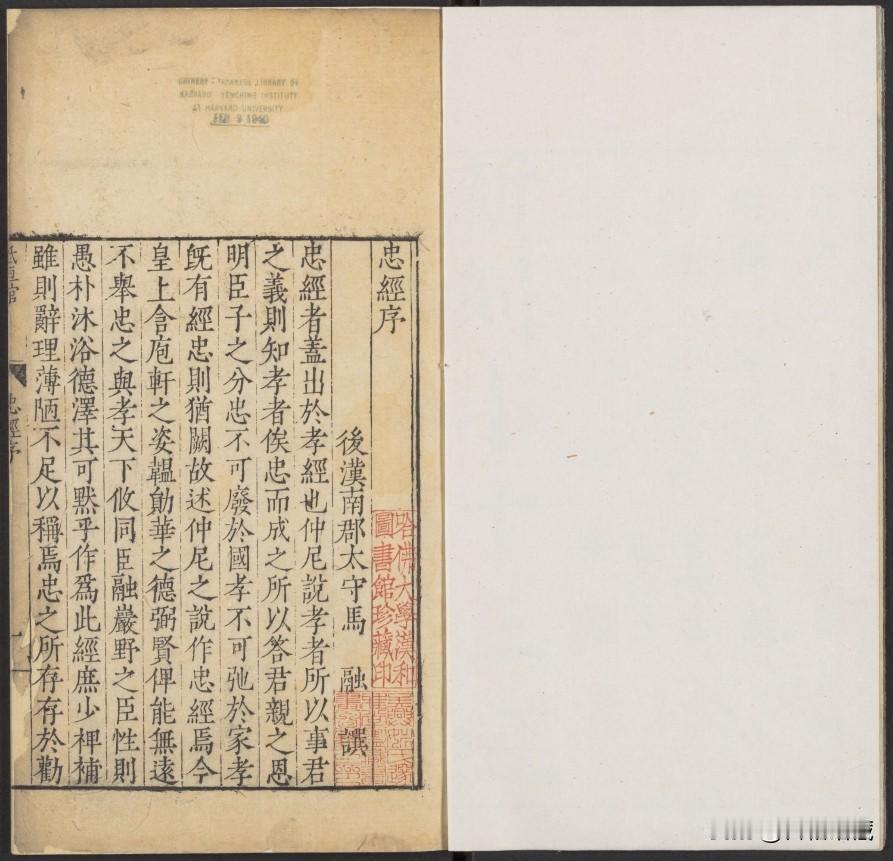 CHINESE - JAPANESE LIBRARY OF
HARVARD YENCHING INSTITUTE
AT HARVARD UNIVERSITY
FEB 9 1940
忠經序
後漢南郡太守馬 融 譔
忠經者蓋出於孝經也仲尼說孝者所以事君
之義則知孝者俟忠而成之所以答君親之恩
明臣子之分忠不可廢於國孝不可弛於家孝
旣有經忠則猶闕故述仲尼之說作忠經焉今
皇上含庖軒之姿韞勛華之德弼賢俾能無遠
不舉忠之與孝天下攸同臣融巖野之臣性則
愚朴沐浴德澤其可默乎作爲此經庶少裨補
雖則辭理薄陋不足以稱焉忠之所存存於勸
忠經序
哈佛大學漢和
圖書館珍藏印